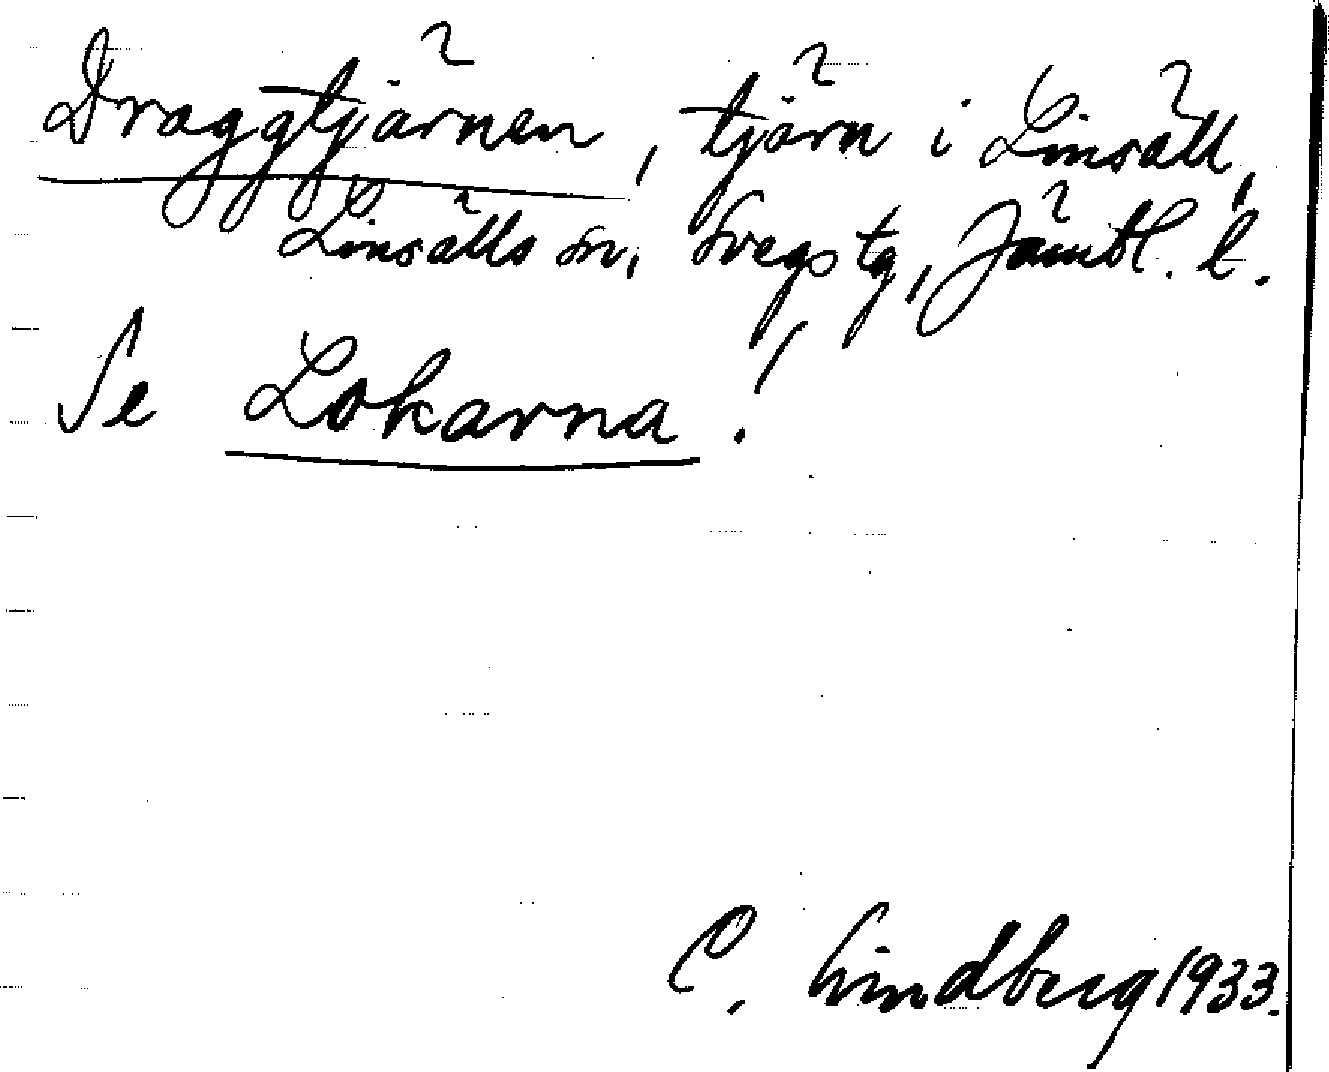 Draggtjärnen, tjärn i Linsäll,
Linsälls sn, Svegs tg, Jämtl. l.
Se Lokarna!
C. Lindberg 1933.